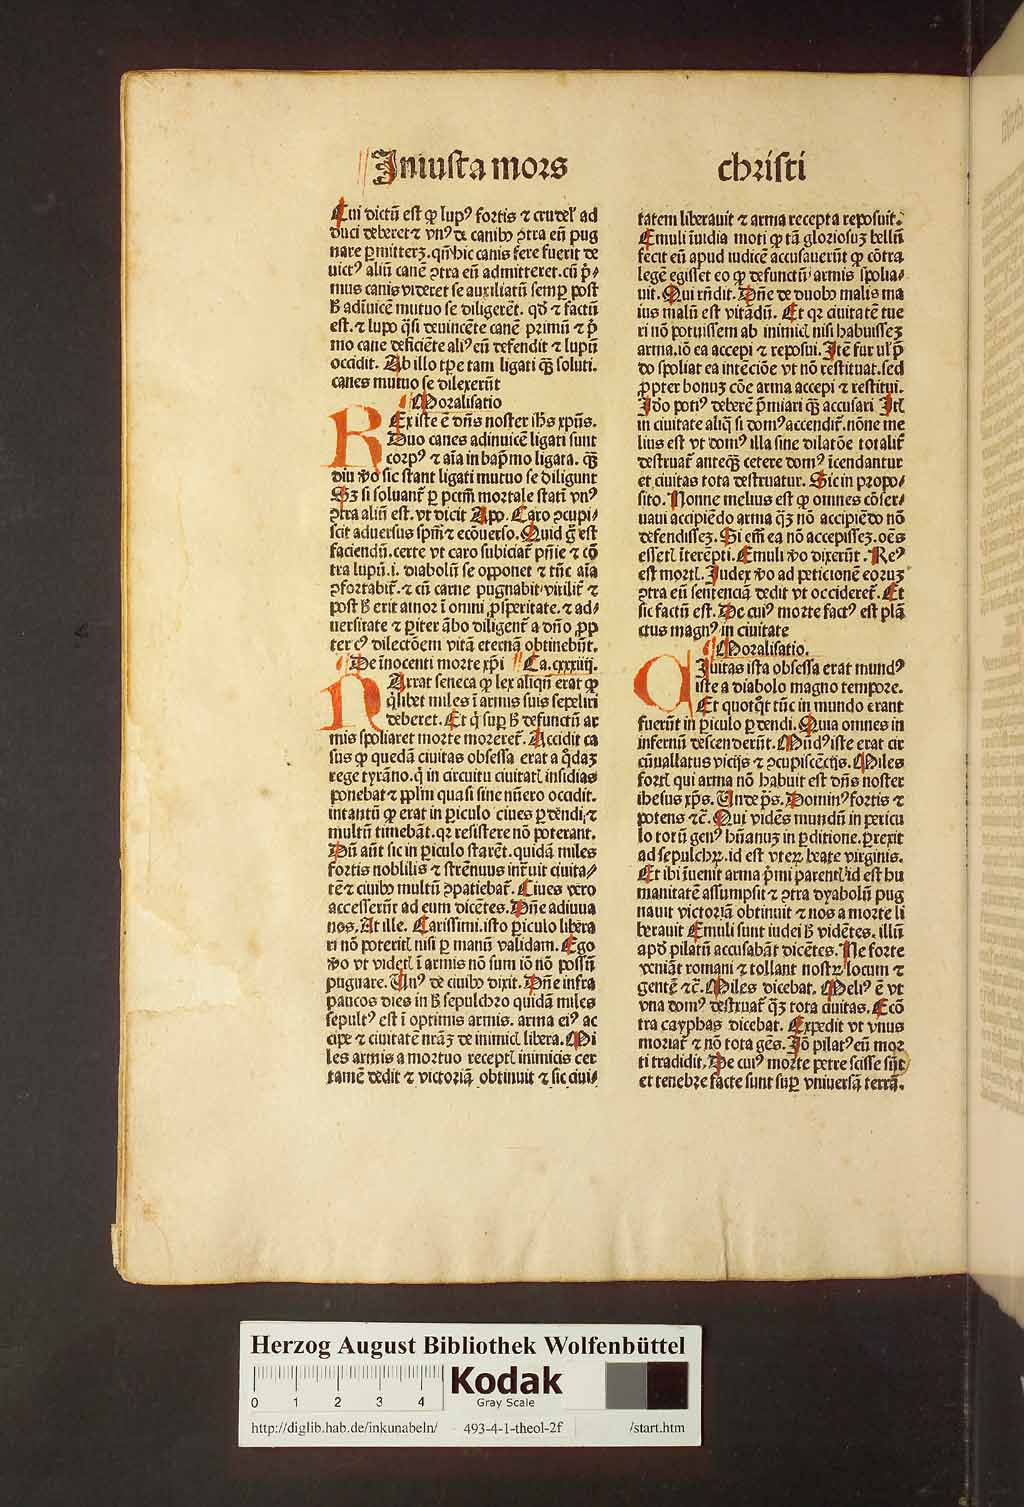 Iniusta mors christi
Cui dictū est ꝙ lupꝰ fortis ⁊ crudel' ad
duci deberet ⁊ vnꝰ de canibꝫ ꝯtra eū pug
nare ꝑmitterꝫ. qn̄ hic canis fere fuerit de
uictꝰ aliū canē ꝯtra eū admitteret. cū p̄-
mus canis videret se auxiliatū semꝑ post
hꝰ adīuicē mutuo se diligerēt. qd̄ ⁊ factū
est. ⁊ lupo q̄si deuincēte canē primū ⁊ p̄
mo cane deficiēte aliꝰ eū defendit ⁊ lupū
occidit. Ab illo tꝑe tam ligati qꝫ soluti.
canes mutuo se dilexerūt
Moralisatio
REx iste ē dn̄s noster ihs xpūs.
Duo canes adinuicē ligati sunt
corpꝰ ⁊ aīa in bap̄mo ligata. qꝫ
diu v̄o sic stant ligati mutuo se diligunt
Sꝫ si soluant̄ ꝑ pctm̄ mortale statī vnꝰ
ꝯtra aliū est. vt dicit Apo. Caro ꝯcupi-
scit aduersus spm̄ ⁊ ecōuerso. Quid g̊ est
faciendū. certe vt caro subiciat̄ pn̄ie ⁊ cō
tra lupū .i. diabolū se opponet ⁊ tūc aīa
ꝯfortabit̄. ⁊ cū carne pugnabit virilit̄ ⁊
post hꝰ erit amor ī omni ꝓsperitate. ⁊ ad-
uersitate ⁊ ꝑiter ābo diligent̄ a dn̄o ꝓp
ter cꝰ dilectōem vitā eternā obtinebūt.
De īnocenti morte xp̄i Ca. cxxxiiij.
NArrat seneca ꝙ lex aliqn̄ erat ꝙ
q̇libet miles ī armis suis sepeliri
deberet. Et q̇ suꝑ hꝰ defunctū ar
mis spoliaret morte moreret̄. Accidit ca
sus ꝙ quedā ciuitas obsessa erat a q̇daꝫ
rege tyrāno. q̇ in circuitu ciuitatꝭ insidias
ponebat ⁊ pplm̄ quasi sine nūero occidit.
intantū ꝙ erat in ꝑiculo ciues ꝑdendi. ⁊
multū timebāt. qꝛ resistere nō poterant.
Dū aūt sic in ꝑiculo starēt. quidā miles
fortis nobilis ⁊ strēnuus intͣuit ciuita-
tē ⁊ ciuibꝫ multū ꝯpatiebat̄. Ciues vero
accesserūt ad eum dicētes. Dn̄e adiuua
nos. At ille. Carissimi. isto ꝑiculo libera
ri nō poteritꝭ nisi ꝑ manū validam. Ego
v̄o vt videtꝭ ī armis nō sum iō nō possū
pugnare. Vnꝰ de ciuibꝫ dixit. Dn̄e infra
paucos dies in hꝰ sepulchro quidā miles
sepultꝰ est ī optimis armis. arma eiꝰ ac
cipe ⁊ ciuitatē nrāꝫ de inimicꝭ libera. Mi
les armis a mortuo receptꝭ inimicis cer
tamē dedit ⁊ victoriā obtinuit ⁊ sic ciui-
tatem liberauit ⁊ arma recepta reposuit.
Emuli īuidia moti ꝙ tā gloriosuꝫ bellū
fecit eū apud iudicē accusauerūt ꝙ cōtra
legē egisset eo ꝙ defunctū armis spolia-
uit. Qui rn̄dit. Dn̄e de duobꝫ malis ma
ius malū est vitādū. Et qꝛ ciuitatē tue
ri nō potuissem ab inimicꝭ nisi habuisseꝫ
arma. iō ea accepi ⁊ reposui. Itē fur ul' p̄
do spoliat ea intēciōe vt nō restituat. sed
ꝓpter bonuꝫ cōe arma accepi ⁊ restitui.
Ido potiꝰ deberē p̄miari qꝫ accusari Itꝭ
in ciuitate aliq̄ si domꝰ accendit̄. nōne me
lius est vt domꝰ illa sine dilatōe totalit̄
destruat̄ anteqꝫ cetere domꝰ īcendantur
et ciuitas tota destruatur. Sic in propo-
sito. Nonne melius est ꝙ omnes cōser-
uaui accipiēdo arma qꝫ nō accipiēdo nō
defendisseꝫ. Si em̄ ea nō accepisseꝫ. oēs
essetꝭ īterēpti. Emuli v̄o dixerūt. Reꝰ
est mortꝭ. Iudex v̄o ad peticionē eoruꝫ
ꝯtra eū sentenciā dedit vt occideret̄. Et
sic factū est. De cuiꝰ morte factꝰ est plā
ctus magnꝰ in ciuitate
Moralisatio.
CIuitas ista obsessa erat mundꝰ
iste a diabolo magno tempore.
Et quotq̇t tūc in mundo erant
fuerūt in ꝑiculo ꝑdendi. Quia omnes in
infernū descenderūt. Mūdꝰ iste erat cir
cūuallatus vicijs ⁊ ꝯcupiscēcijs. Miles
fortꝭ qui arma nō habuit est dn̄s noster
ihesus xp̄s. Vnde p̄s. Dominꝰ fortis ⁊
potens ⁊c̄. Qui vidēs mundū in pericu
lo totū genꝰ hūanuꝫ in ꝑditione. ꝑrexit
ad sepulchꝝ. id est vteꝝ beate virginis.
Et ibi īuenit arma p̄mi parentꝭ id est hu
manitatē assumpsit ⁊ ꝯtra dyabolū pug
nauit victoriā obtinuit ⁊ nos a morte li
berauit Emuli sunt iudei hꝰ vidētes. illū
apd̄ pilatū accusabāt dicētes. Ne forte
veniāt romani ⁊ tollant nostꝝ locum ⁊
gentē ⁊c̄. Miles dicebat. Meliꝰ ē vt
vna domꝰ destruat̄ qꝫ tota ciuitas. Ecō
tra cayphas dicebat. Expedit vt vnus
moriat̄ ⁊ nō tota gēs. Iō pilatꝰ eū mor
ti tradidit. De cuiꝰ morte petre scisse sūt
et tenebre facte sunt suꝑ vniuersā terrā.
Herzog August Bibliothek Wolfenbüttel
0 1 2 3 4
Kodak
Gray Scale
http://diglib.hab.de/inkunabeln/ 493-4-1-theol-2f /start.htm